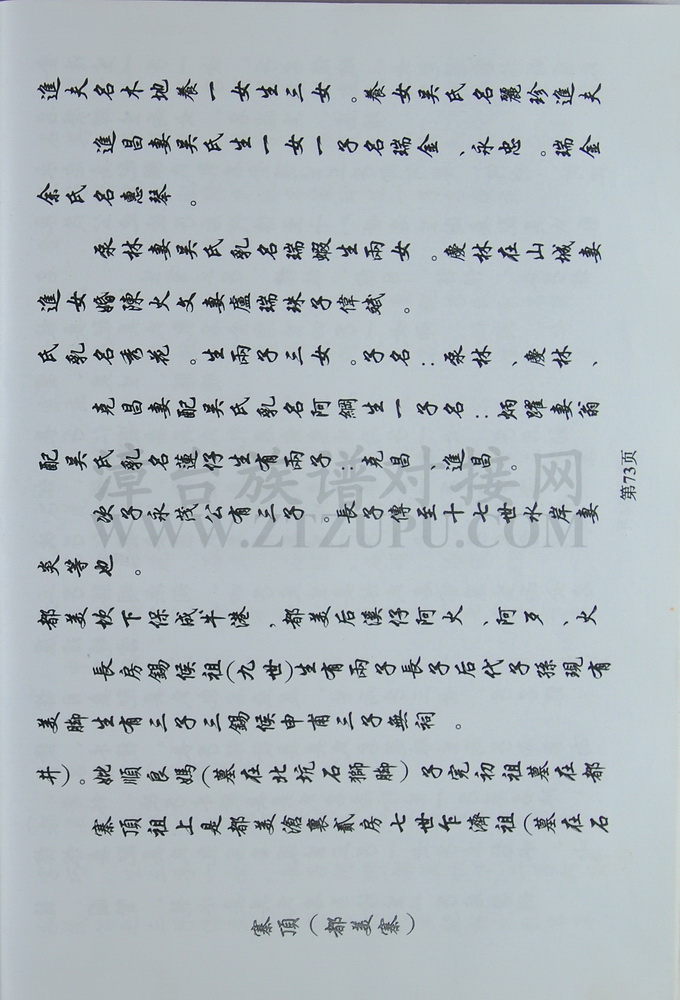 寨頂（都美寨）
寨頂祖上是都美滄裏貳房七世乍濟祖（墓在石
井）。妣順良媽（墓在北坑石獅脚）子完初祖墓在都
美脚生有三子三錫候申甫三子無祠。
長房錫候祖（九世）生有兩子長子后代子孫現有
都美坎下保咸斗港，都美后溪仔阿火、阿歹、火
炎等也。
次子永茂公有三子。長子傳至十七世水岸妻
配吴氏乳名蓮仔生有兩子：克昌、進昌。
克昌妻配吴氏乳名阿綢生一子名：炳躍妻翁
氏乳名秀花。生兩子三女。子名：泰林、慶林、
進女婚陳火文妻盧瑞珠子偉斌。
泰林妻吴氏乳名瑞蝦生兩女。慶林在山城妻
余氏名惠琴。
進昌妻吴氏生一女一子名瑞金、永忠。瑞金
進夫名木地養一女生三女。養女吴氏名麗珍進夫
第73页
漳台族谱对接网
WWW.ZTZUPU.COM